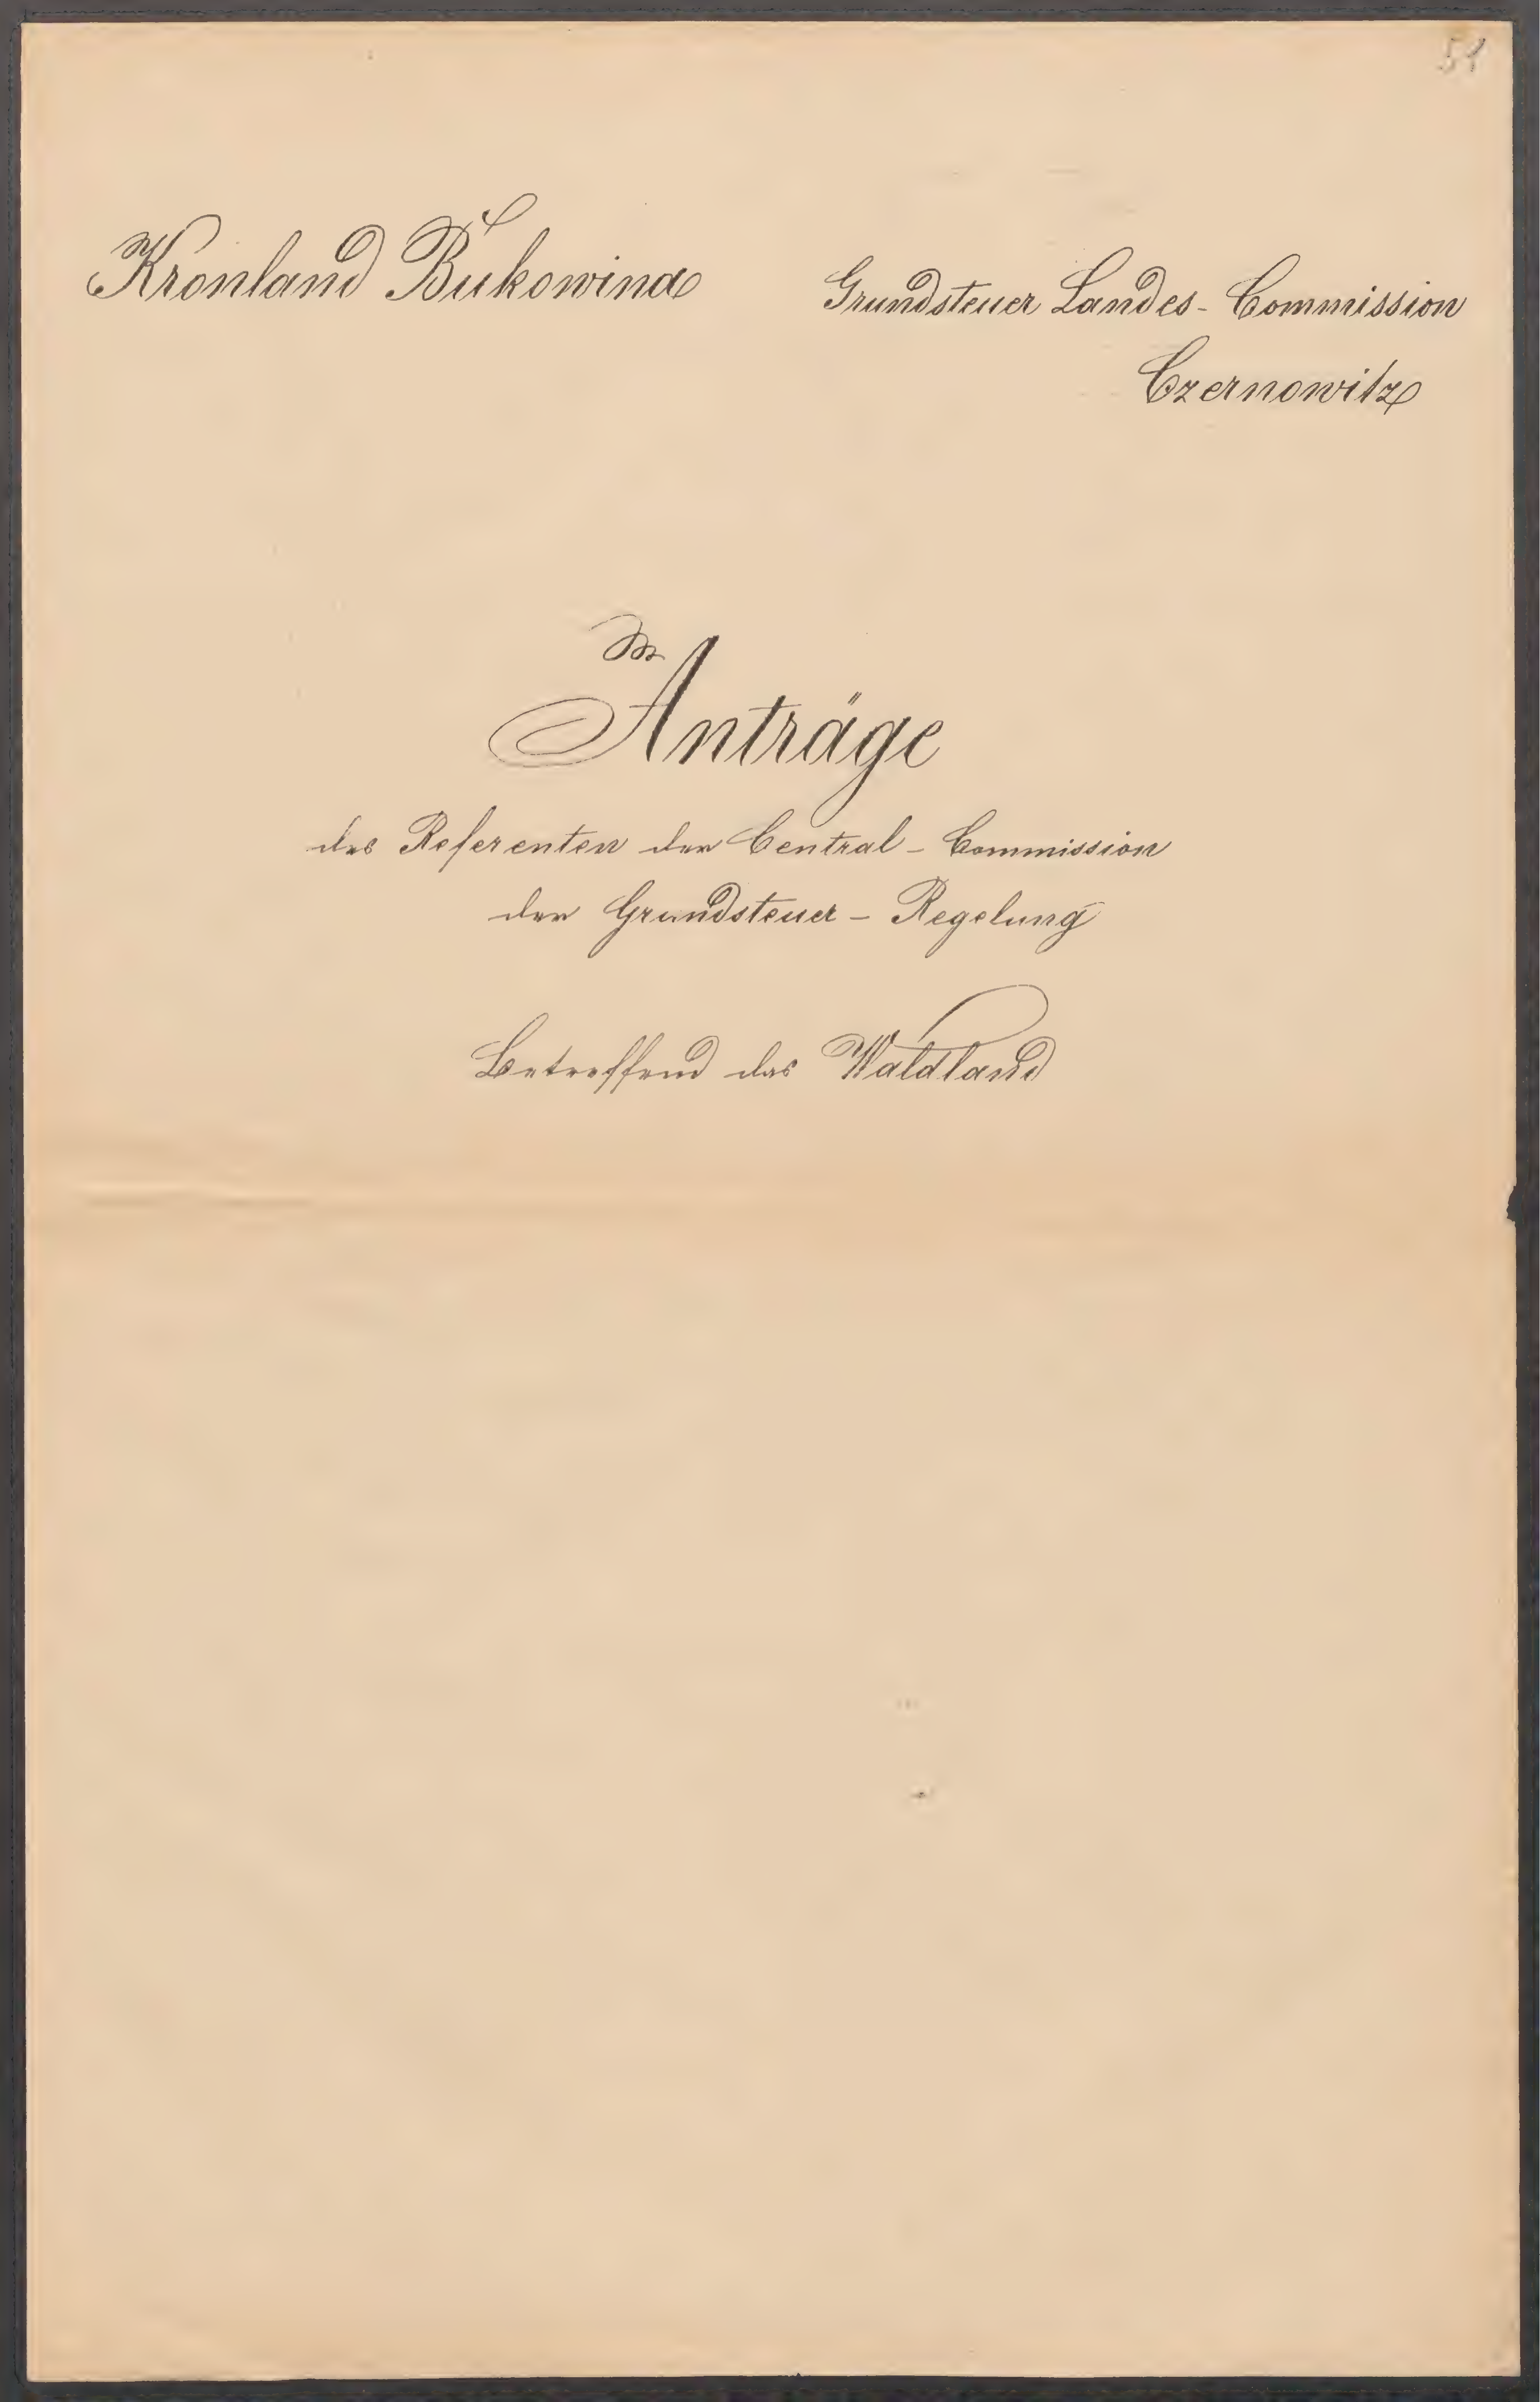 51
Kronland Bukowina
Grundsteuer Landes-Commission
Czernowitz
Anträge
des Referenten der Central-Commission
der Grundsteuer-Regelung
Betreffend das Waldland